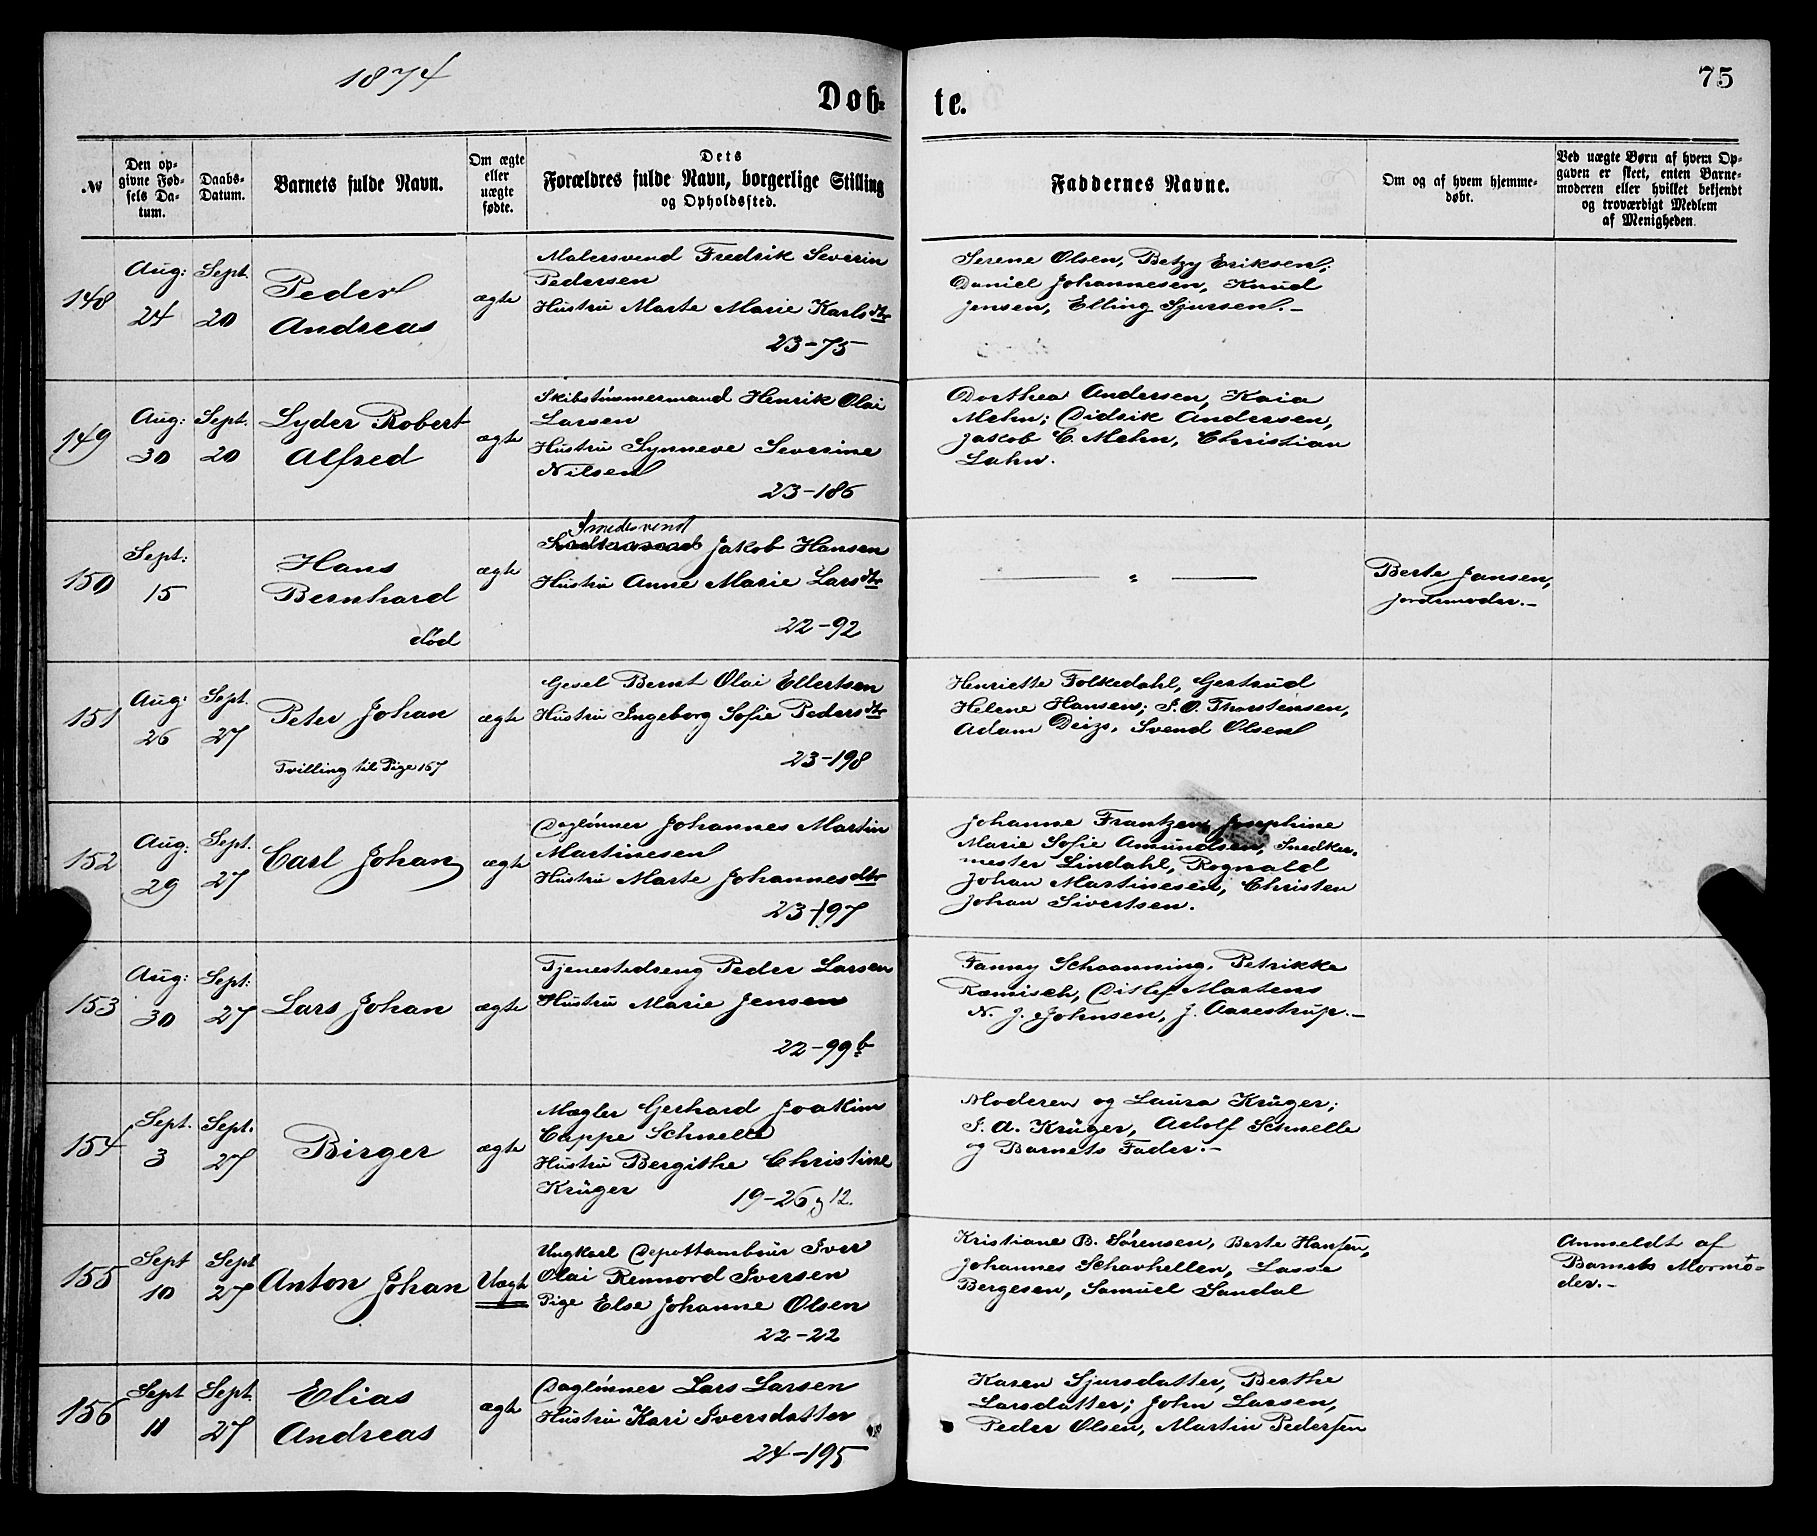 1874
Døb-
te.
75
№
Den op-
givne Fød-
sels Da-
tum.
Daabs-
Datum.
Barnets fulde Navn.
Om ægte
eller
uægte
fødte.
Dets
Forældres fulde Navn, borgerlige Stilling
og Opholdssted.
Faddernes Navne.
Om og af hvem hjemme-
døbt.
Ved uægte Børn af hvem Op-
gaven er skeet, enten Barne-
moderen eller hvilket bekjendt
og troværdigt Medlem
af Menigheden.
148
Aug:
24
Sept.
20
Peder
Andreas
ægte
Malersvend Fredrik Severin
Pedersen
Hustru Marte Marie Karlsdtr
23-75
Serene Olsen, Betzy Eriksen;
Daniel Johannesen, Knud
Jensen, Elling Sjursen.-
149
Aug:
30
Sept.
20
Lyder Robert
Alfred
ægte
Skibstømmermand Henrik Olai
Larsen
Hustru Synneve Severine
Nilsen
23-186
Dorthea Andersen, Kaia
Mehn; Didrik Andersen,
Jakob C. Mehn, Christian
Lahn.
150
Sept:
15
Hans
Bernhard
død
ægte
Smedesvend
Jakob Hansen
Hustru Anne Marie Larsdtr
22-92
— " —
Berte Jansen,
Jordemoder.-
151
Aug:
26
Sept.
27
Peter Johan
Tvilling til Pige 167
ægte
Gesel Bernt Olai Ellertsen
Hustru Ingeborg Sofie Pedersdtr
23-198
Henriette Folkedahl, Gertrud
Helene Hansen; S. O. Thorstensen,
Adam Deizs, Svend Olsen
152
Aug:
29
Sept.
27
Carl Johan
ægte
Daglønner Johannes Martin
Martinesen
Hustru Marte Johannesdtr
23-197
Johanne Frantzen, Josephine
Marie Sofie Amundsen, Snedker-
mester Lindahl, Rognald
Johan Martinesen, Christen
Johan Sivertsen.
153
Aug:
30
Sept:
27
Lars Johan
ægte
Tjenestedreng Peder Larsen
Hustru Marie Jensen
22-99b
Fanny Schaanning, Petrikke
Ræmisch, Ditlef Martens
N. J. Johnsen, J. Aarestrup.-
154
Sept.
3
Sept.
27
Birger
ægte
Mægler Gerhard Joakim
Cappe Schnelle
Hustru Bergithe Christine
Krüger
19-26 g 12.
Moderen og Laura Krüger;
S. A. Krüger, Adolf Schnelle
og Barnets Fader.-
155
Sept
10
Sept
27
Anton Johan
Uægte
Ungkarl Depottambour Iver
Olai Rennord Iversen
Pige Else Johanne Olsen
22-22
Kristiane B. Sørensen, Berte Hansen,
Johannes Schavhellen, Lasse
Bergesen, Samuel Sandal
Anmeldt af
Barnets Mormo-
der.-
156
Sept
11
Sept.
27
Elias
Andreas
ægte
Daglønner Lars Larsen
Hustru Kari Iversdatter
24-195
Karen Sjursdatter, Berthe
Larsdatter; John Larsen,
Peder Olsen, Martin Pedersen